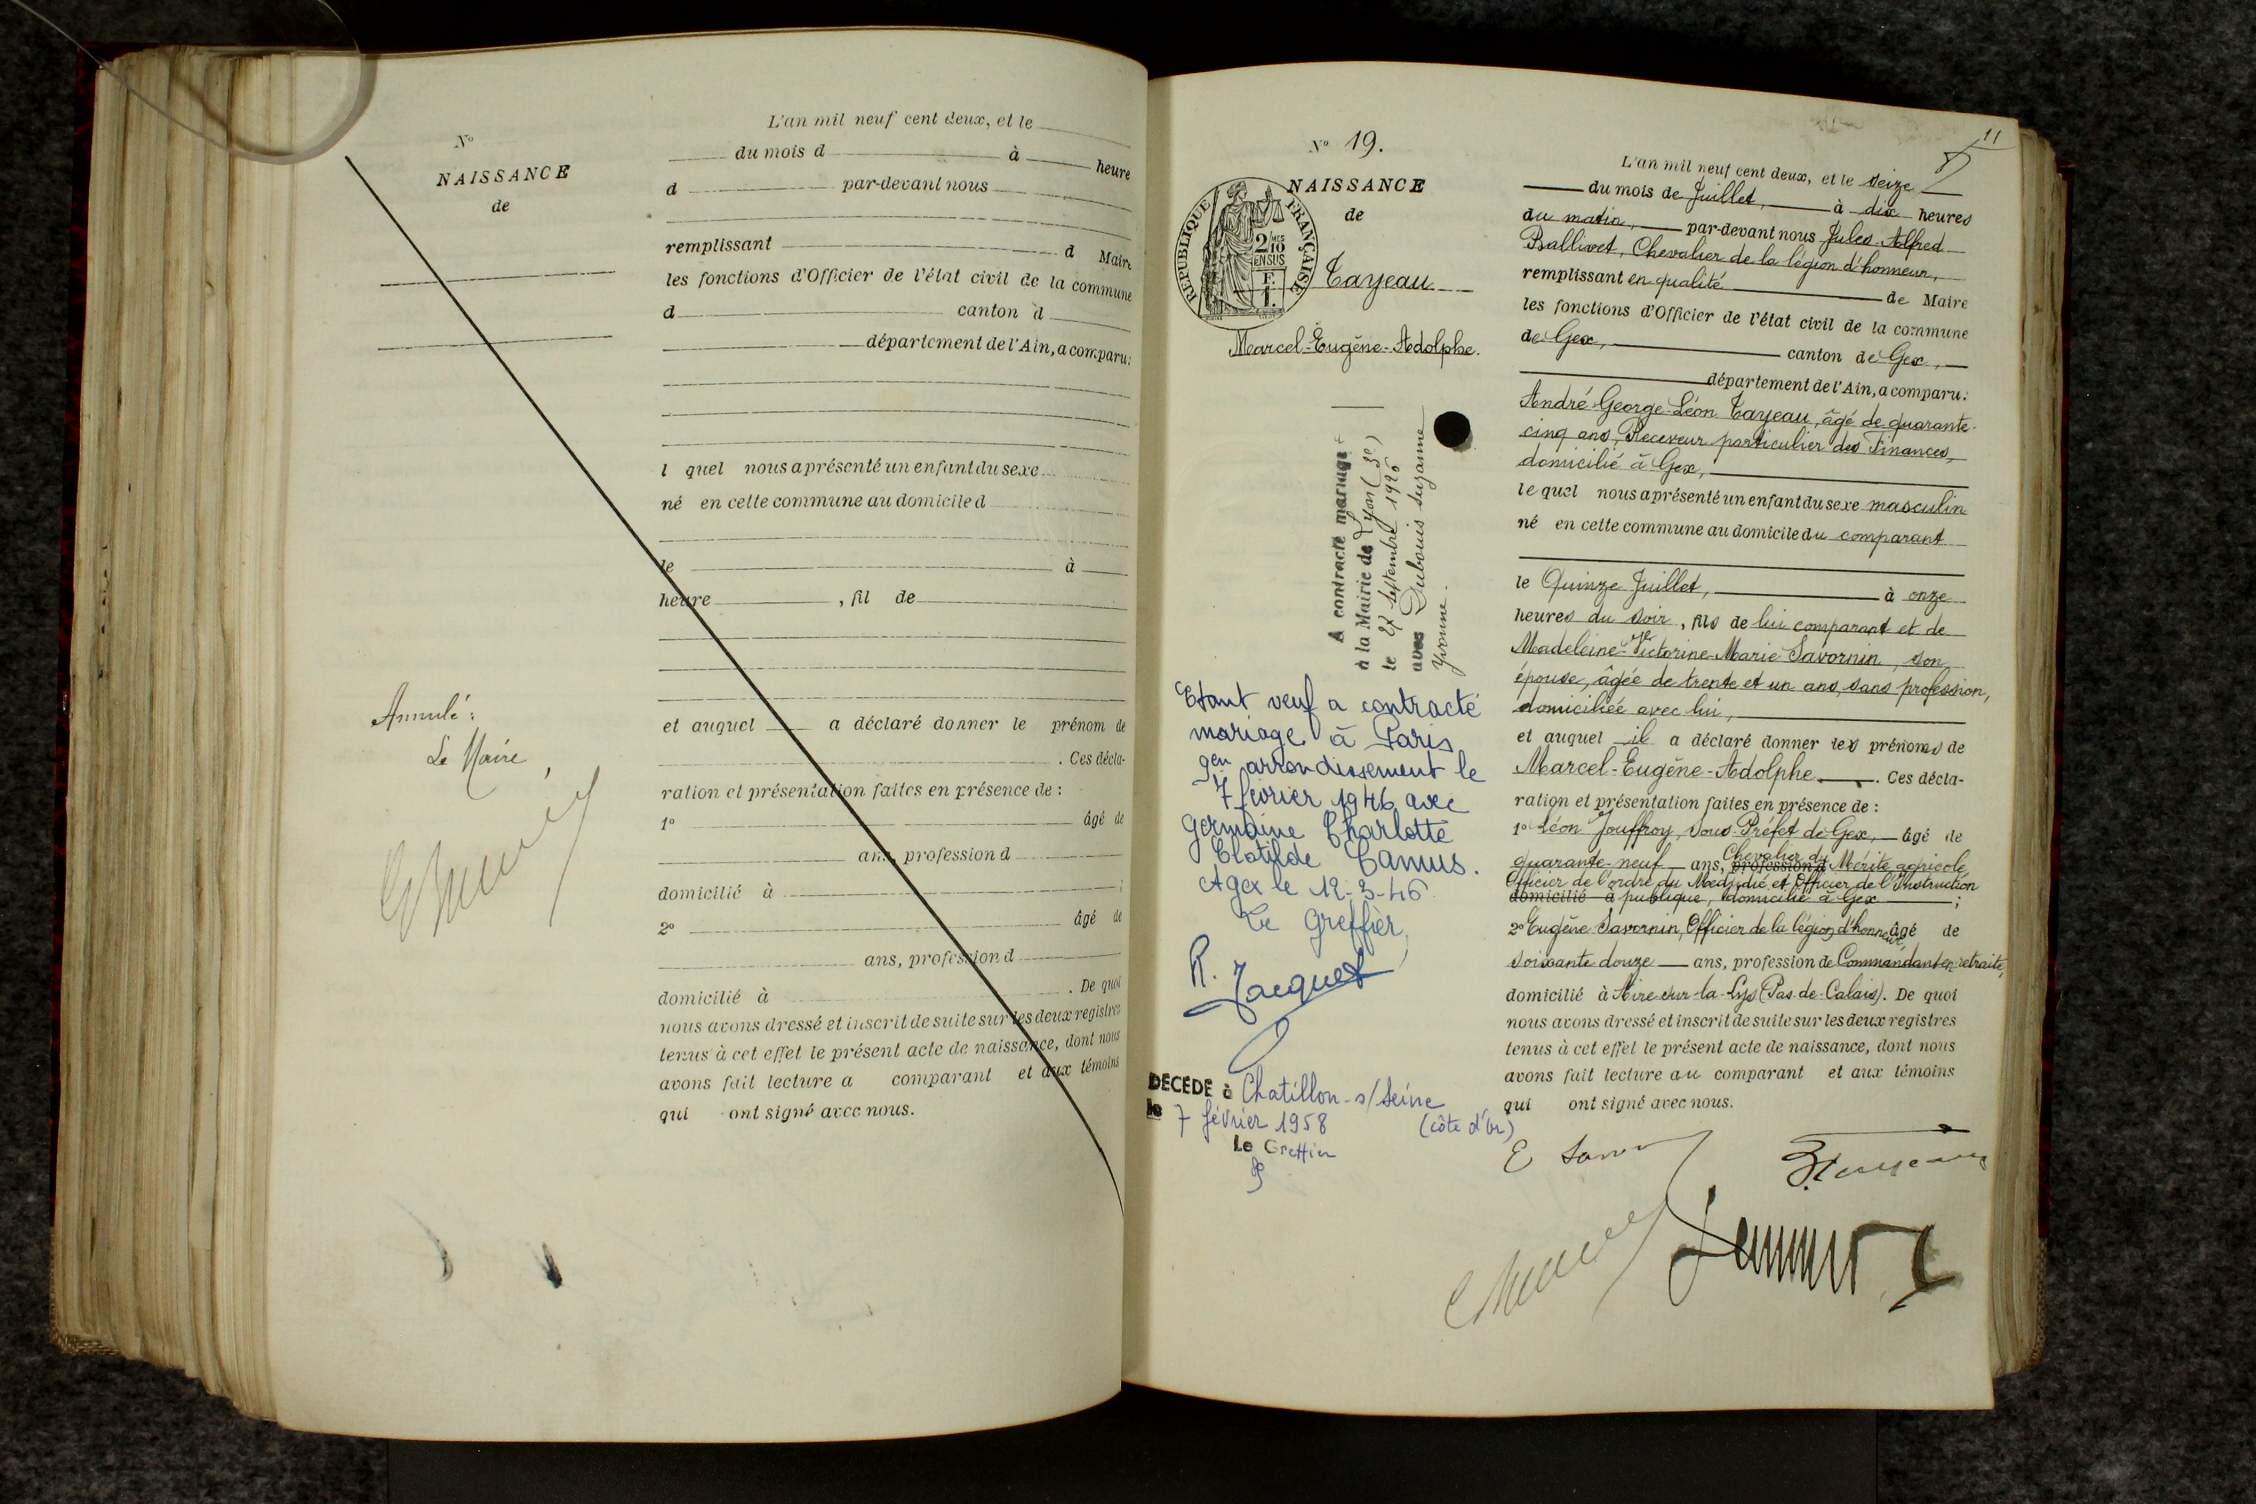 L'an mil neuf cent deux, et le
N°
NAISSANCE
de
du mois d à heure
d par-devant nous
remplissant d Maire
les fonctions d'Officier de l'état civil de la commune
d canton d
département de l'Ain, a comparu:
l quel nous a présenté un enfant du sexe
né en cette commune au domicile d
le à
heure , fil de
et auquel a déclaré donner le prénom de
. Ces décla-
ration et présentation faites en présence de :
1° âgé de
ans, profession d
domicilié à ;
2° âgé de
ans, profession d
domicilié à . De quoi
nous avons dressé et inscrit de suite sur les deux registres
tenus à cet effet le présent acte de naissance, dont nous
avons fait lecture a comparant et aux témoins
qui ont signé avec nous.
Annulé :
Le Maire,
N° 19.
NAISSANCE
de
RÉPUBLIQUE FRANÇAISE
2 MES 10
EN SUS
F.
1.
Tayeau
Marcel-Eugène-Adolphe.
A contracté mariage
à la Mairie de Lyon (3e)
le 27 Septembre 1926
avec Dubouis Suzanne
Yvonne.
Etant veuf a contracté
mariage à Paris
9en arrondissement le
7 février 1946 avec
Germaine Charlotte
Clotilde Camus.
A Gex le 12-3-46
Le Greffier,
R. Jacquet
DÉCÉDÉ à Chatillon-s/Seine
le 7 février 1958 (côte d'Or)
Le Greffier
11
L'an mil neuf cent deux, et le seize
du mois de Juillet, à dix heures
du matin, par-devant nous Jules Alfred
Ballivet, Chevalier de la légion d'honneur,
remplissant en qualité de Maire
les fonctions d'Officier de l'état civil de la commune
de Gex, canton de Gex,
département de l'Ain, a comparu:
André-George-Léon Tayeau, âgé de quarante-
cinq ans, Receveur particulier des Finances,
domicilié à Gex,
lequel nous a présenté un enfant du sexe masculin
né en cette commune au domicile du comparant
le Quinze Juillet, à onze
heures du soir, fils de lui comparant et de
Madeleine-Victorine-Marie Savornin, son
épouse, âgée de trente et un ans, sans profession,
domiciliée avec lui,
et auquel il a déclaré donner les prénoms de
Marcel-Eugène-Adolphe. Ces décla-
ration et présentation faites en présence de :
1° Léon Jouffroy, Sous-Préfet de Gex, âgé de
quarante-neuf ans, profession d Chevalier du Mérite agricole
Officier de l'ordre du Medjidié et Officier de l'Instruction
domicilié à publique, domicilié à Gex ;
2° Eugène Savornin, Officier de la légion d'honneur, âgé de
soixante douze ans, profession de Commandant en retraite,
domicilié à Aire-sur-la-Lys (Pas-de-Calais). De quoi
nous avons dressé et inscrit de suite sur les deux registres
tenus à cet effet le présent acte de naissance, dont nous
avons fait lecture au comparant et aux témoins
qui ont signé avec nous.